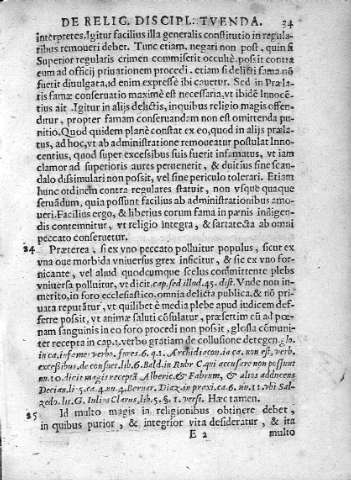 DE RELIG. DISCIPL. TVENDA. 34
interpretes. Igitur facilius illa generalis constitutio in regula-
ribus remoueri debet. Tunc etiam, negari non post, quin si
Superior regularis crimen commiserit occultè possit contra
eum ad officij priuationem procedi, etiam si delicti fama nō
fuerit diuulgata, id enim expressè ibi cauetur. Sed in Præla-
tis famæ conseruatio maximè est necessaria, vt ibidē Innocē-
tius ait. Igitur in alijs delictis, in quibus religio magis offen-
ditur, propter famam conseruandam non est omittenda pu-
nitio. Quod quidem planè constat ex eo, quod in alijs præla-
tus, ad hoc, vt ab administratione remoueatur postulat Inno-
centius, quod super excessibus suis fuerit infamatus, vt iam
clamor ad superioris aures peruenerit, & diutius sine scan-
dalo dissimulari non possit, vel sine periculo tolerari. Etiam
hunc ordinem contra regulares statuit, non vsque quaque
seruādum, quia possunt facilius ab administrationibus amo-
ueri. Facilius ergo, & liberius eorum fama in pœnis indigen-
dis contemnitur, vt religio integra, & sartatecta ab omni
peccato conseruetur.
24 Præterea, si ex vno peccato polluitur populus, sicut ex
vna oue morbida vniuersus grex inficitur, & sic ex vno for-
nicante, vel aliud quodcumque scelus committente plebs
vniuersa polluitur, vt dicit. cap. sed illud. 45. dist. Vnde non in-
merito, in foro ecclesiastico, omnia delicta publica, & nō pri-
uata reputātur, vt quilibet è media plebe apud iudicem def-
ferre possit, vt animæ saluti cōsulatur, præsertim cū ad pœ-
nam sanguinis in eo foro procedi non possit, glossa cōmuni
ter recepta in cap. 1. verbo gratiam de collusione detegen. Io.
in ca. infame. verbo. fores. 6. q. 1. Archidiacon. in ca. non est, verb.
excessibus. de consuet. lib. 6. Bald. in Rubr C. qui accusare non possunt
nu. 10. dicit magis receptā Alberic. & Fabrum, & alios adducens
Decian. li. 5. ca. 4. nu. 4. Bernar. Diaz. in praxi. ca. 6. nu. 11. vbi Sal-
zedo. lit. G. Iulius Clarus, lib. 5. §. 1. versi. Hæc tamen.
25 Id multo magis in religionibus obtinere debet,
in quibus purior, & integrior vita desideratur, & ita
E 2 multo